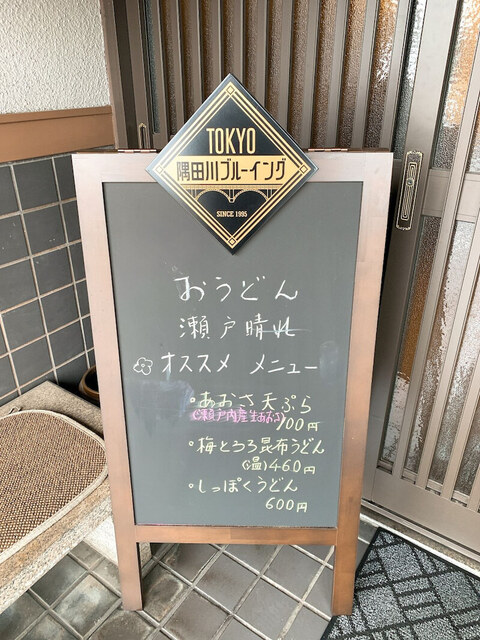 TOKYO
隅田川ブルーイング
SINCE 1995
おうどん
瀬戸晴れ
オススメ メニュー
・あおさ天ぷら
(瀬戸内産生あおさ)
700円
・梅とろろ昆布うどん
(温)460円
・しっぽくうどん
600円